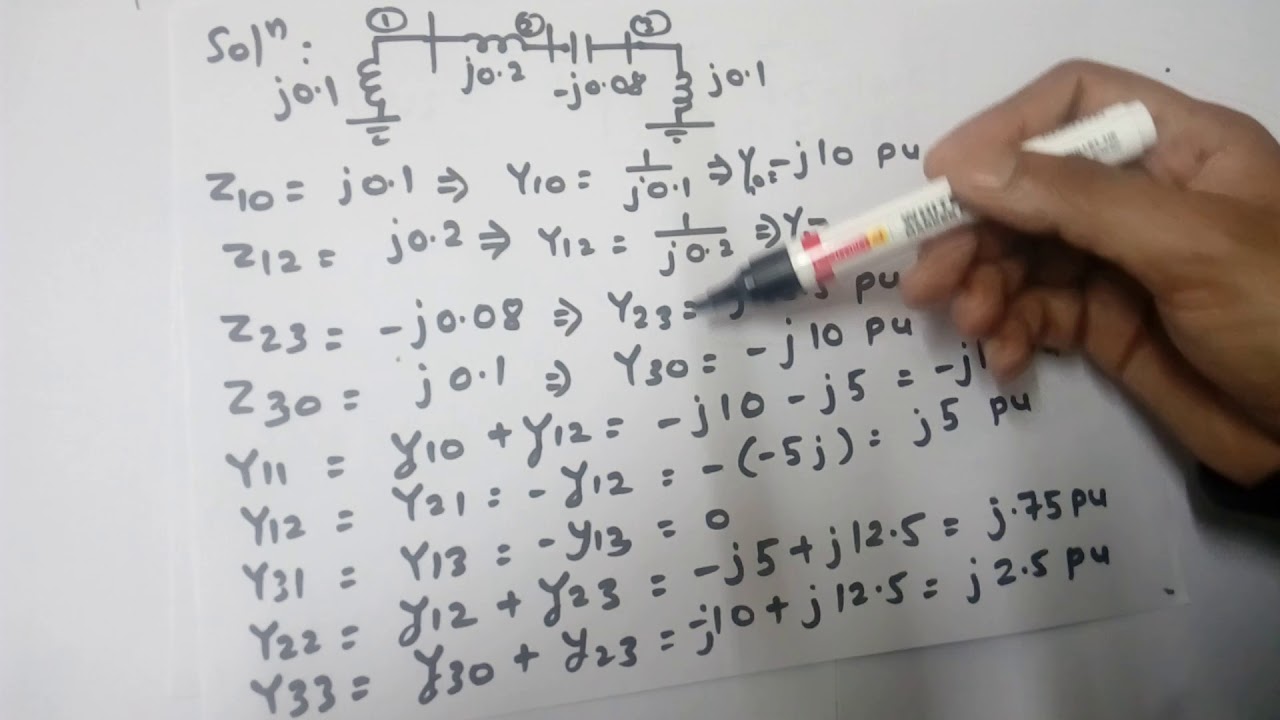 Solⁿ :
① ② ③
j0.1 j0.2 -j0.08 j0.1
Z10 = j0.1 ⇒ Y10 = 1/j0.1 ⇒ Y10 = -j10 pu
Z12 = j0.2 ⇒ Y12 = 1/j0.2 ⇒ Y=
Z23 = -j0.08 ⇒ Y23 = j pu
Z30 = j0.1 ⇒ Y30 = -j10 pu
Y11 = y10 + y12 = -j10 - j5 = -j1
Y12 = Y21 = -y12 = -(-5j) = j5 pu
Y31 = Y13 = -y13 = 0
Y22 = y12 + y23 = -j5 + j12.5 = j.75 pu
Y33 = y30 + y23 = -j10 + j12.5 = j2.5 pu